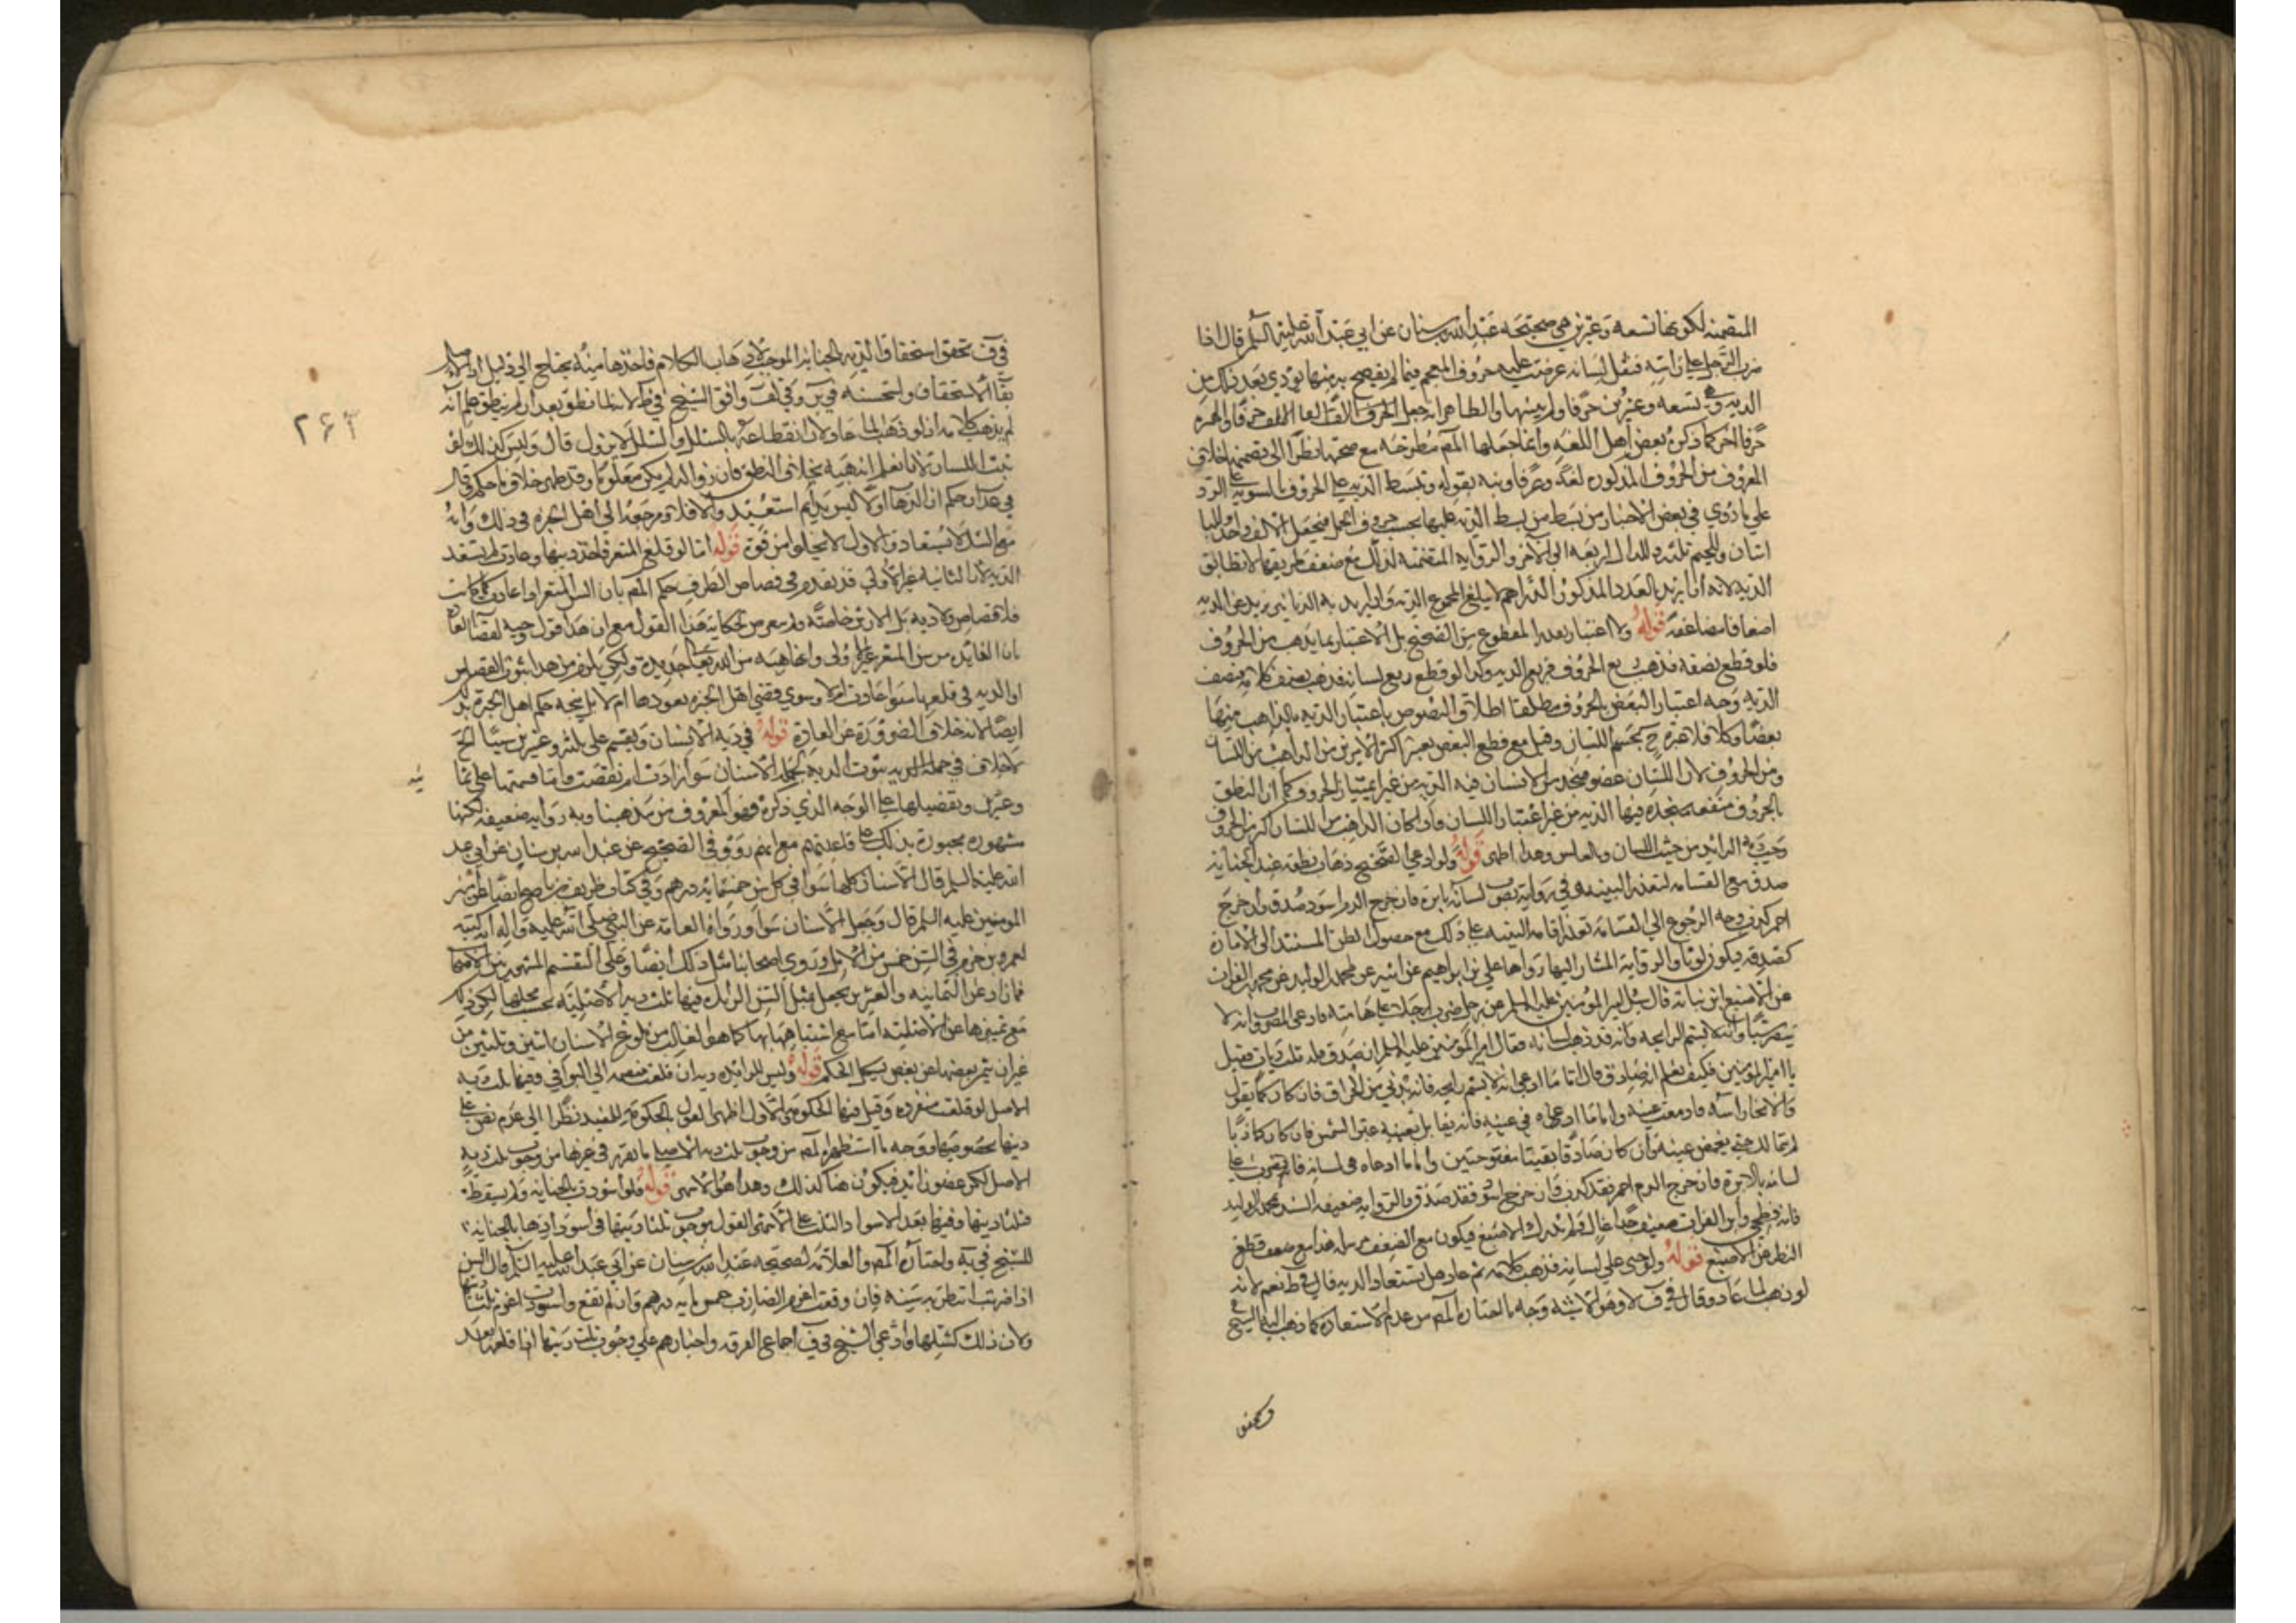 المتضمنه لكونها تسعه وعشرين هي صحيحه عبد الله بن سنان عن ابي عبد الله عليه السلم قال اذا
ضرب الرجل على راسه فثقل لسانه عرضت عليه حروف المعجم فما لم يفصح به منها يودي بقدر ذلك من
الديه وهي تسعه وعشرون حرفا ولم يبينها والظاهر انه جعل الالف حرفا والهمزه
حرفا اخر كما ذكره بعض اهل اللغه وانما جعلها المصم مطرحه مع صحتها نظرا الى تضمنها خلاف
المعروف من الحروف المذكوره لغه وعرفا ونبه بقوله وتبسط الديه على الحروف بالسويه على الرد
على ما روي في بعض الاخبار من بسط الديه عليها بحسب حروف الجمل فيجعل الالف واحدا والبا
اثنان وللجيم ثلثه وللدال اربعه الى الاخر والروايه المتضمنه لذلك مع ضعف طريقها لا تطابق
الديه لانه ان اريد بالعدد المذكور الدراهم لا يبلغ المجموع الديه وان اريد به الدنانير يزيد عن الديه
اضعافا مضاعفه قوله ولا اعتبار بقدر المقطوع من الصحيح بل الاعتبار بما يذهب من الحروف
فلو قطع نصفه فذهب ربع الحروف فربع الديه وكذا لو قطع ربع لسانه فذهب نصف كلامه فنصف
الديه وجه اعتبار البعض بالحروف مطلقا اطلاق النصوص باعتبار الديه بالذاهب منها
بعضا وكلا فلا عبره ح بجسم اللسان وقيل مع قطع البعض يعتبر اكثر الامرين من الذاهب من اللسان
ومن الحروف لان اللسان عضو متحد من الانسان فيه الديه من غير اعتبار الحروف كما ان النطق
بالحروف منفعه متحده فيها الديه من غير اعتبار اللسان وان كان الذاهب من اللسان اكثر من الحروف
وجبت ديه الزائد من حيث اللسان وبالعكس وهذا اظهر قوله ولو ادعى الصحيح ذهاب نطقه عند الجنايه
صدق مع القسامه لتعذر البينه وفي روايه يضرب لسانه بابرة فان خرج الدم اسود صدق وان خرج
احمر كذب وجه الرجوع الى القسامه تعذر اقامه البينه على ذلك مع حصول الظن المستند الى الاماره
كصدقه فيكون لوثا والروايه المشار اليها رواها علي بن ابراهيم عن ابيه عن محمد بن الوليد عن محمد بن الفرات
عن الاصبغ بن نباته قال سئل امير المؤمنين عليه السلم عن رجل ضرب رجلا على هامته فادعى المضروب انه لا
يبصر شيئا وانه لا يشم الرايحه وانه قد ذهب لسانه فقال امير المؤمنين عليه السلم ان صدق فله ثلث ديات فقيل
يا امير المؤمنين فكيف يعلم انه صادق قال اما ما ادعى انه لا يشم رايحه فانه يدني من الحراق فان كان كما يقول
والا نحا راسه ودمعت عينه واما ما ادعاه في عينه فانه يقابل بعينه عين الشمس فان كان كاذبا
لم يتمالك حتى يغمض عينه وان كان صادقا بقيتا مفتوحتين واما ما ادعاه في لسانه فانه يضرب على
لسانه بالابرة فان خرج الدم احمر فقد كذب وان خرج اسود فقد صدق والروايه ضعيفه السند بمحمد بن الوليد
فانه فطحي وابن الفرات ضعيف جدا غال ولم يدرك الاصبغ فيكون مع الضعف مرسله هذا مع ضعف قطع
النظر عن الاصبغ قوله ولو جنى على لسانه فذهب كلامه ثم عاد هل تستعاد الديه قال في ط نعم لانه
لو ذهب لما عاد وقال في ف لا وهو الاشبه وجه ما اختاره المصم من عدم الاستعاده كما ذهب اليه الشيخ في
في ف تحقق استحقاق الديه بالجنايه الموجبه لذهاب الكلام فاخذها منه يحتاج الى دليل اذ الاصل
بقا الاستحقاق واستحسنه في ير وفي لف وافق الشيخ في ط لانه لما نطق بعد ان لم ينطق علم انه
لم يذهب كلامه اذ لو ذهب لما عاد ولان انقطاعه بالشلل والشلل لا يزول قال وليس كذلك لو
نبت اللسان لانا نعلم انه هبه بخلاف النطق فان زواله لم يكن معلوما وقد ظهر خلاف ما حكم به قال
في عد ان حكم ان الذهاب اولا ليس بدايم استعيد والا فلا ومرجعه الى اهل الخبره في ذلك وانه
مع الشك لا تستعاد والاول لا يخلو من قوة قوله اما لو قلع سن المثغر فاخذ ديتها وعادت لم يستعد
الديه لان الثانيه غير الاولى قد تقدم في قصاص الطرف حكم المصم بان السن المثغر لو عادت كما كانت
فلا قصاص ولا ديه بل الارش خاصه ولم يتعرض لحكايه هذا القول مع ان هذا قول وجيه لقضا العاده
بان العايد من سن المثغر غير الاولى وانما هبه من الله تعالى جديدة ولكن يلزم من هذا ثبوت القصاص
او الديه في قلعها سوا عادت ام لا وسوا قضى اهل الخبره بعودها ام لا بل يتجه حكم اهل الخبرة بذلك
ايضا لانه خلاف المفروض من العاده قوله في ديه الاسنان ويقسم على ثمانيه وعشرين سنا الخ
لا خلاف في جمله الديه بثبوت الديه لجمله الاسنان سوا زادت ام نقصت واما قسمتها على ثما
نيه
وعشرين وتفصيلها على الوجه الذي ذكره فهو المعروف من مذهبنا وبه روايه ضعيفه لكنها
مشهوره مجبورة بذلك على قاعدتهم مع انهم رووا في الصحيح عن عبد الله بن سنان عن ابي عبد
الله عليه السلم قال الاسنان كلها سوا في كل سن خمسمايه درهم وفي كتاب ظريف بن ناصح ايضا عن امير
المومنين عليه السلم قال وجعل الاسنان سوا ورواه العامه عن النبي صلى الله عليه واله انه كتبه
لعمرو بن حزم في السن خمس من الابل وروى اصحابنا مثل ذلك ايضا وعلى التقسيم المشهور
فما زاد عن الثمانيه والعشرين يجعل مثل السن الزايده فيها ثلث ديه الاصليه بحسب محلها لكن ذلك
مع تميزها عن الاصليه اما مع اشتباهها بها كما هو الغالب من بلوغ الاسنان اثنين وثلثين من
غير ان يتميز بعضها عن بعض يشكل الحكم قوله وليس للزائده ديه ان قلعت منضمه الى البواقي وفيها ثلث ديه
الاصل لو قلعت منفرده وقيل فيها الحكومه والاول اظهر القول بالحكومه للمفيد نظرا الى عدم نص على
ديتها بخصوصها ووجه ما استظهره المصم من وجوب ثلث ديه الاصلي ما تقرر في غيرها من وجوب ثلث ديه
الاصل لكل عضو زائد فيكون هنا كذلك وهذا هو الاشهر قوله ولو اسودت بالجنايه ولم يسقط
فثلثا ديتها وفيها بعد الاسوداد الثلث على الاشهر القول بوجوب ثلثا ديتها في اسودادها بالجنايه
للشيخ في يه واختاره المصم والعلامه لصحيحه عبد الله بن سنان عن ابي عبد الله عليه السلم قال السن
اذا ضربت انتظر به سنه فان وقعت اغرم الضارب خمسمايه درهم وان لم تقع واسودت اغرم ثلثي ديتها
ولان ذلك كشللها وادعى الشيخ في ف اجماع الفرقه واخبارهم على وجوب ثلث ديتها اذا قلعت بعد
٢۶٢